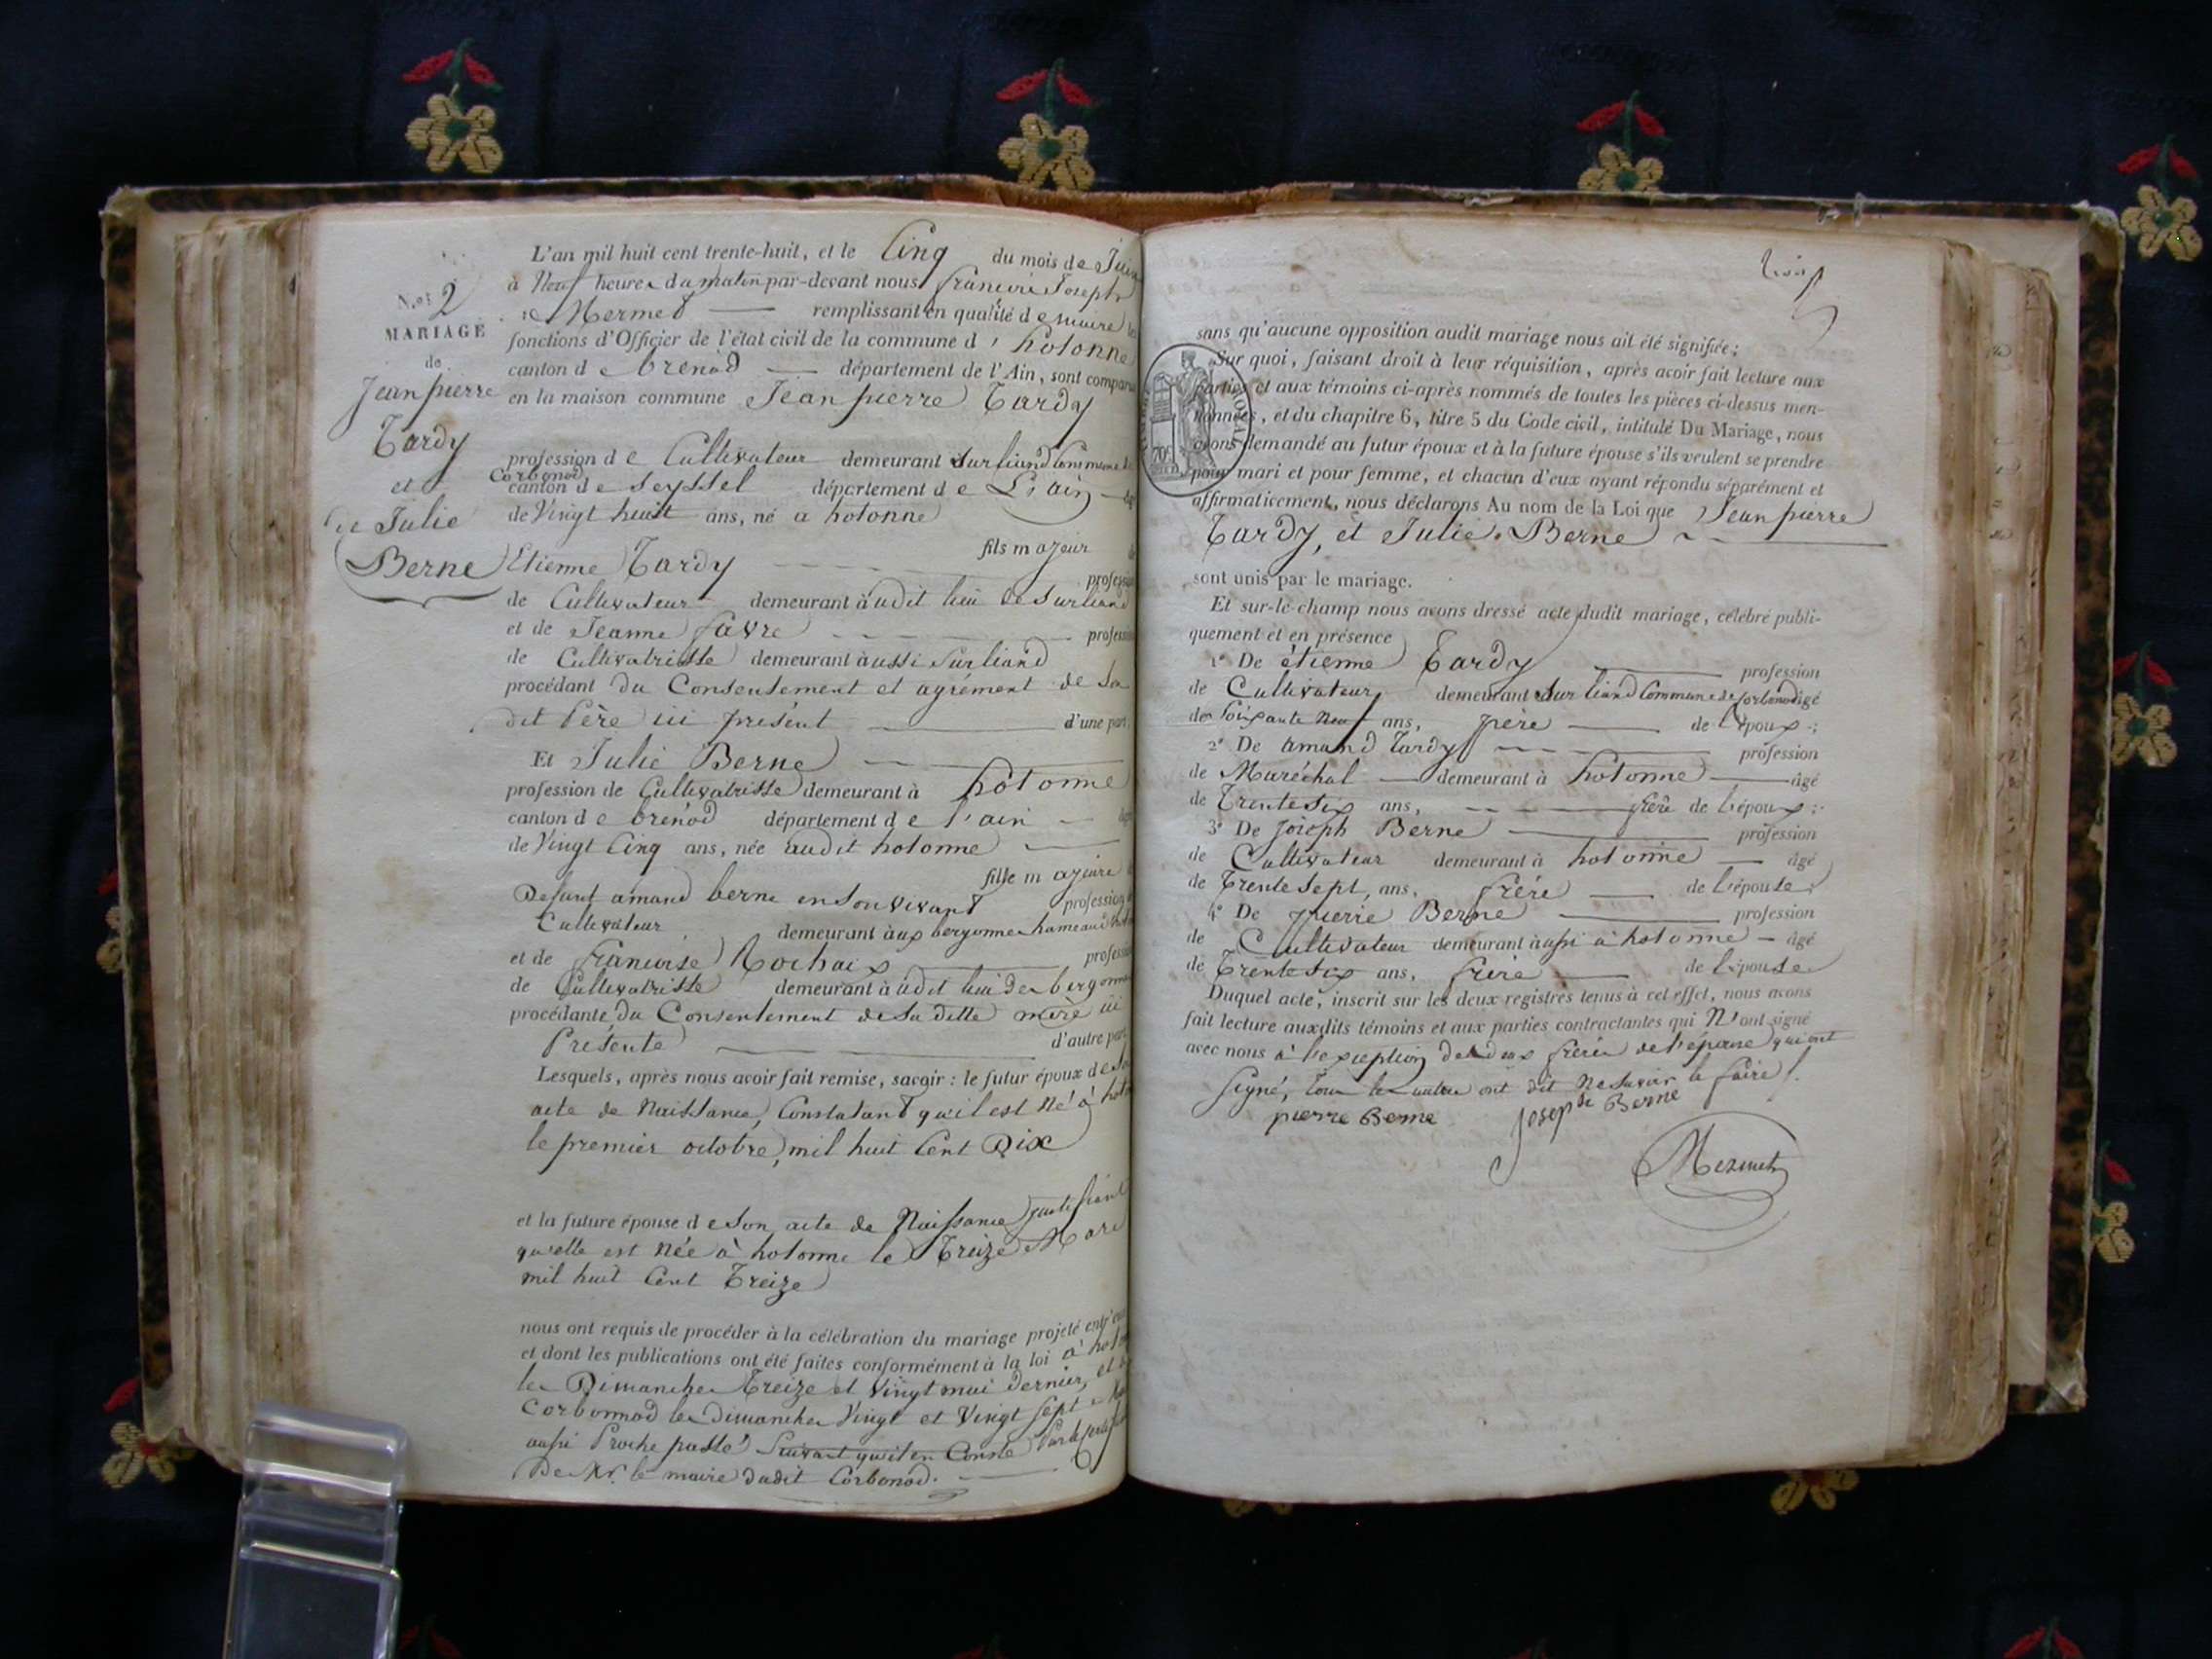 L'an mil huit cent trente-huit, et le Cinq du mois de Juin
à Neuf heures du matin par-devant nous francois Joseph
Mermet remplissant en qualité de maire les
fonctions d'Officier de l'état civil de la commune d'hotonne
canton de brenod département de l'Ain, sont comparus
en la maison commune Jean pierre Tardy
profession de Cultivateur demeurant Surliand Commune de
Corbonod
canton de Seyssel département de L'ain âgé
de Vingt huit ans, né a hotonne
fils majeur de
Etienne Tardy profession
de Cultivateur demeurant à udit lieu de Surliand
et de Jeanne favre profession
de Cultivatrisse demeurant àussi Surliand
procédant du Consentement et agrément de Son
dit Père ici présent d'une part.
Et Julie Berne
profession de Cultivatrisse demeurant à hotonne
canton de brénod département de l'ain âgé
de Vingt Cinq ans, née audit hotonne
fille majeure
Defunt amand berne en Son vivant profession
Cultivateur demeurant àux bergonnes hameau
et de francoise Rochaix profession
de Cultivatrisse demeurant à udit lieu des bergonnes
procédante du Consentement de Sa ditte mère ici
Présente d'autre part
Lesquels, après nous avoir fait remise, savoir : le futur époux de Son
acte de Naissance, Constatant qu'il est Né à
le premier octobre mil huit Cent Dix
et la future épouse de Son acte de Naissance justifiant
qu'elle est Née à hotonne le Treize Mars
mil huit Cent Treize
nous ont requis de procéder à la célébration du mariage projeté entr'eux
et dont les publications ont été faites conformément à la loi à
les Dimanches Treize et Vingt mai dernier, et à
Corbonnod les Dimanches Vingt et Vingt Sept
aussi Proche passé Suivant qu'il en Conste
De Mr. le maire dudit Corbonod.
N.os 2
MARIAGE
de
Jean pierre
Tardy
et
de Julie
Berne
trois
sans qu'aucune opposition audit mariage nous ait été signifiée;
Sur quoi, faisant droit à leur réquisition, après avoir fait lecture aux
parties et aux témoins ci-après nommés de toutes les pièces ci-dessus men-
tionnées, et du chapitre 6, titre 5 du Code civil, intitulé Du Mariage, nous
avons demandé au futur époux et à la future épouse s'ils veulent se prendre
pour mari et pour femme, et chacun d'eux ayant répondu séparément et
affirmativement, nous déclarons Au nom de la Loi que Jean pierre
Tardy, et Julie Berne
sont unis par le mariage.
Et sur-le-champ nous avons dressé acte dudit mariage, célébré publi-
quement et en présence
1° De étienne Tardy profession
de Cultivateur demeurant Sur liand Commune de Corbonod âgé
de Soixante Neuf ans, père de l'époux ;
2° De amand Tardy profession
de Maréchal demeurant à hotonne âgé
de Trente Six ans, frère de l'époux ;
3° De Joseph Berne profession
de Cultivateur demeurant à hotonne âgé
de Trente Sept, ans, frére de l'épouse ;
4° De pierre Berne profession
de Cultivateur demeurant àussi à hotonne âgé
de Trente Six ans, frère de l'épouse
Duquel acte, inscrit sur les deux registres tenus à cet effet, nous avons
fait lecture auxdits témoins et aux parties contractantes qui N'ont signé
avec nous à l'exception des deux frères de l'épouse qui ont
Signé, tous les autres ont dit Ne Savoir le faire.
pierre Berne Joseph Berne
Mermet